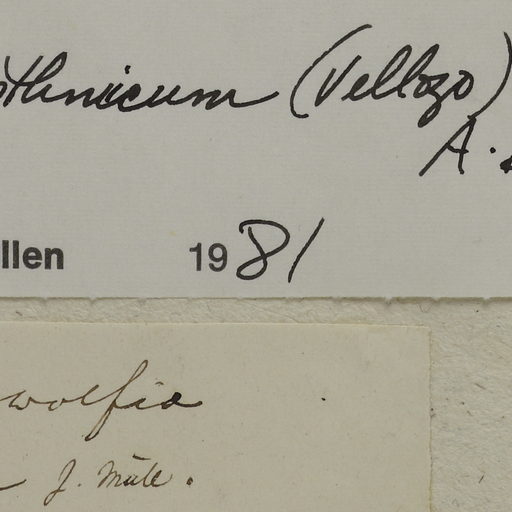 othnicum (Vellozo)
A.
llen 1981
wolfia
J. Müll.